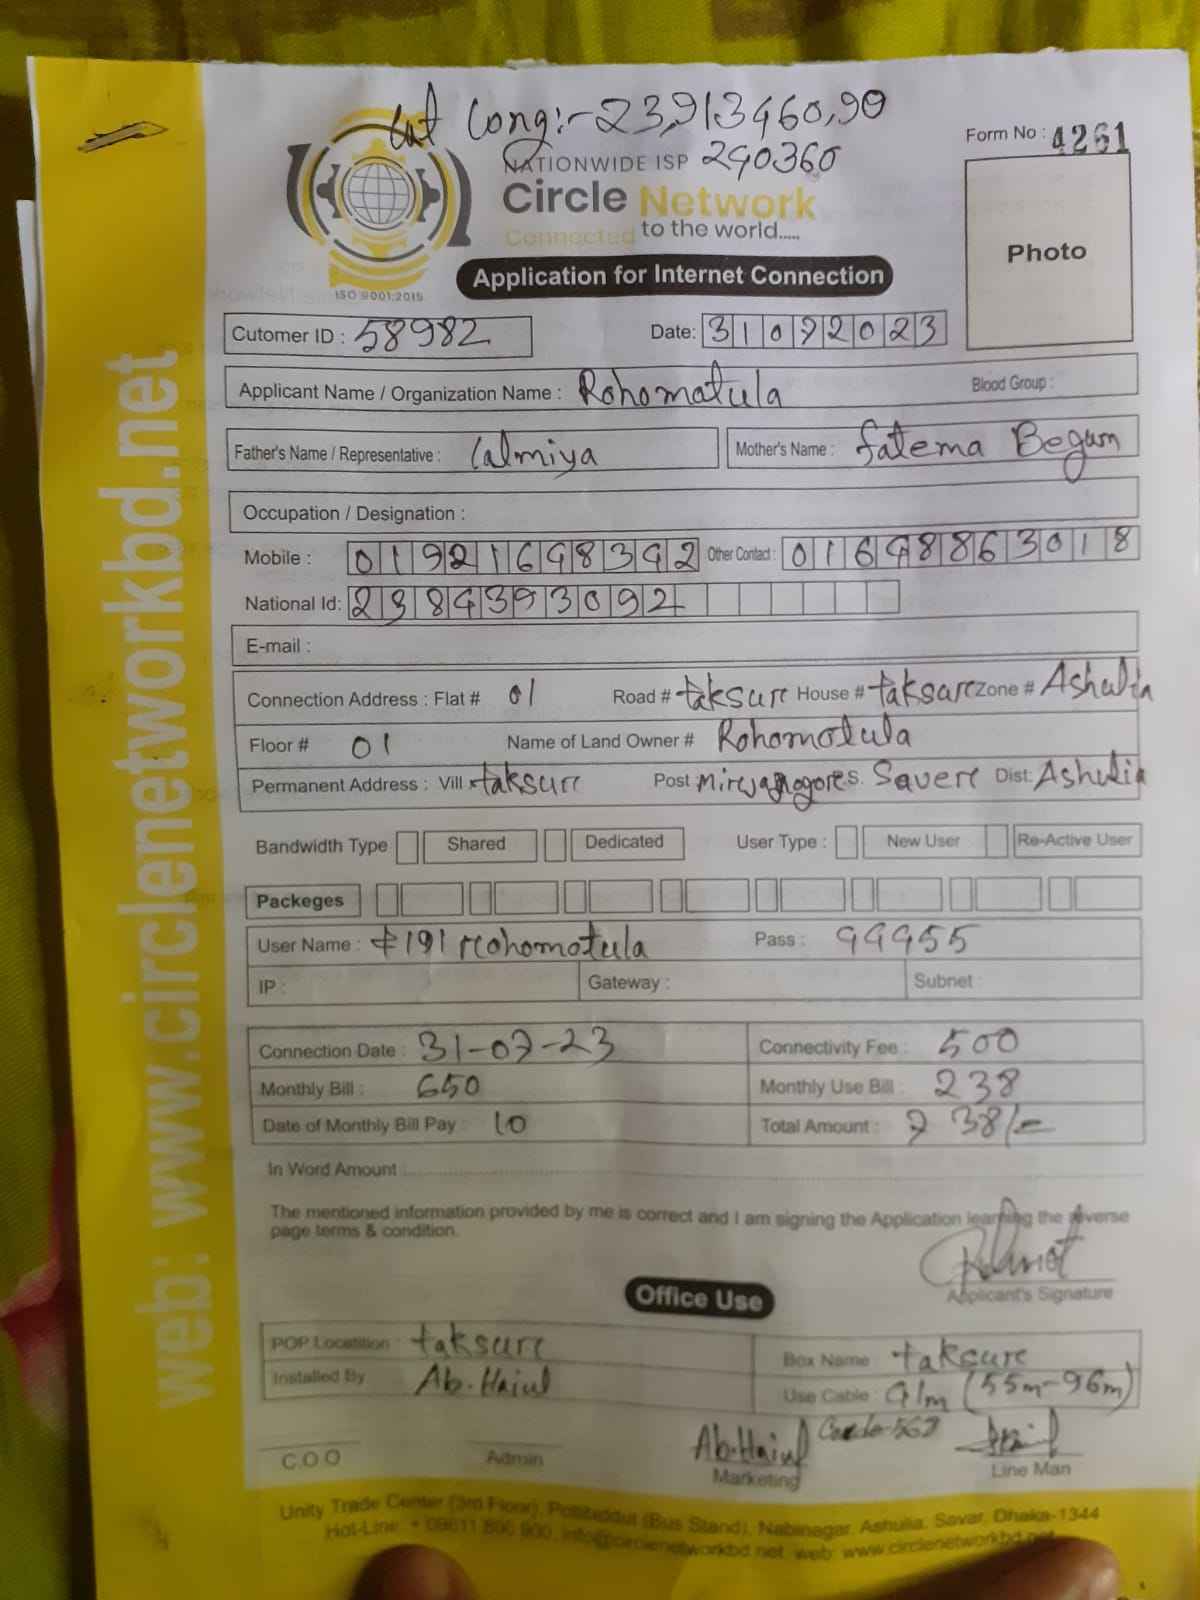 Lat Long:- 23,913460,90
NATIONWIDE ISP 290360
Circle Network
Connected to the world.....
ISO 9001:2015
Application for Internet Connection
Form No : 4261
Photo
Cutomer ID : 58982
Date: 31072023
Applicant Name / Organization Name : Rohomatula
Blood Group :
Father's Name / Representative : Lalmiya
Mother's Name : fatema Begum
Occupation / Designation :
Mobile : 01921698392 Other Contact : 01698863018
National Id: 2384393092
E-mail :
Connection Address : Flat # 01 Road # taksure House # taksure Zone # Ashulia
Floor # 01 Name of Land Owner # Rohomotula
Permanent Address : Vill taksure Post P.S. Savere Dist: Ashulia
Bandwidth Type Shared Dedicated User Type : New User Re-Active User
Packeges
User Name : Pass : 99955
IP : Gateway : Subnet :
Connection Date : 31-07-23 Connectivity Fee : 500
Monthly Bill : 650 Monthly Use Bill : 238
Date of Monthly Bill Pay : 10 Total Amount : 738/=
In Word Amount :
The mentioned information provided by me is correct and I am signing the Application learning the reverse
page terms & condition.
Applicant's Signature
Office Use
POP Locatition : taksure Box Name : taksure
Installed By Ab.Haiul Use Cable : 41m (55m-96m)
Ab.Haiul Code-567
C.O.O Admin Marketing Line Man
Unity Trade Center (3rd Floor), Pollibiddut (Bus Stand), Nabinagar, Ashulia, Savar, Dhaka-1344
Hot-Line: + 09611 800 900, info@circlenetworkbd.net, web: www.circlenetworkbd.net
web: www.circlenetworkbd.net